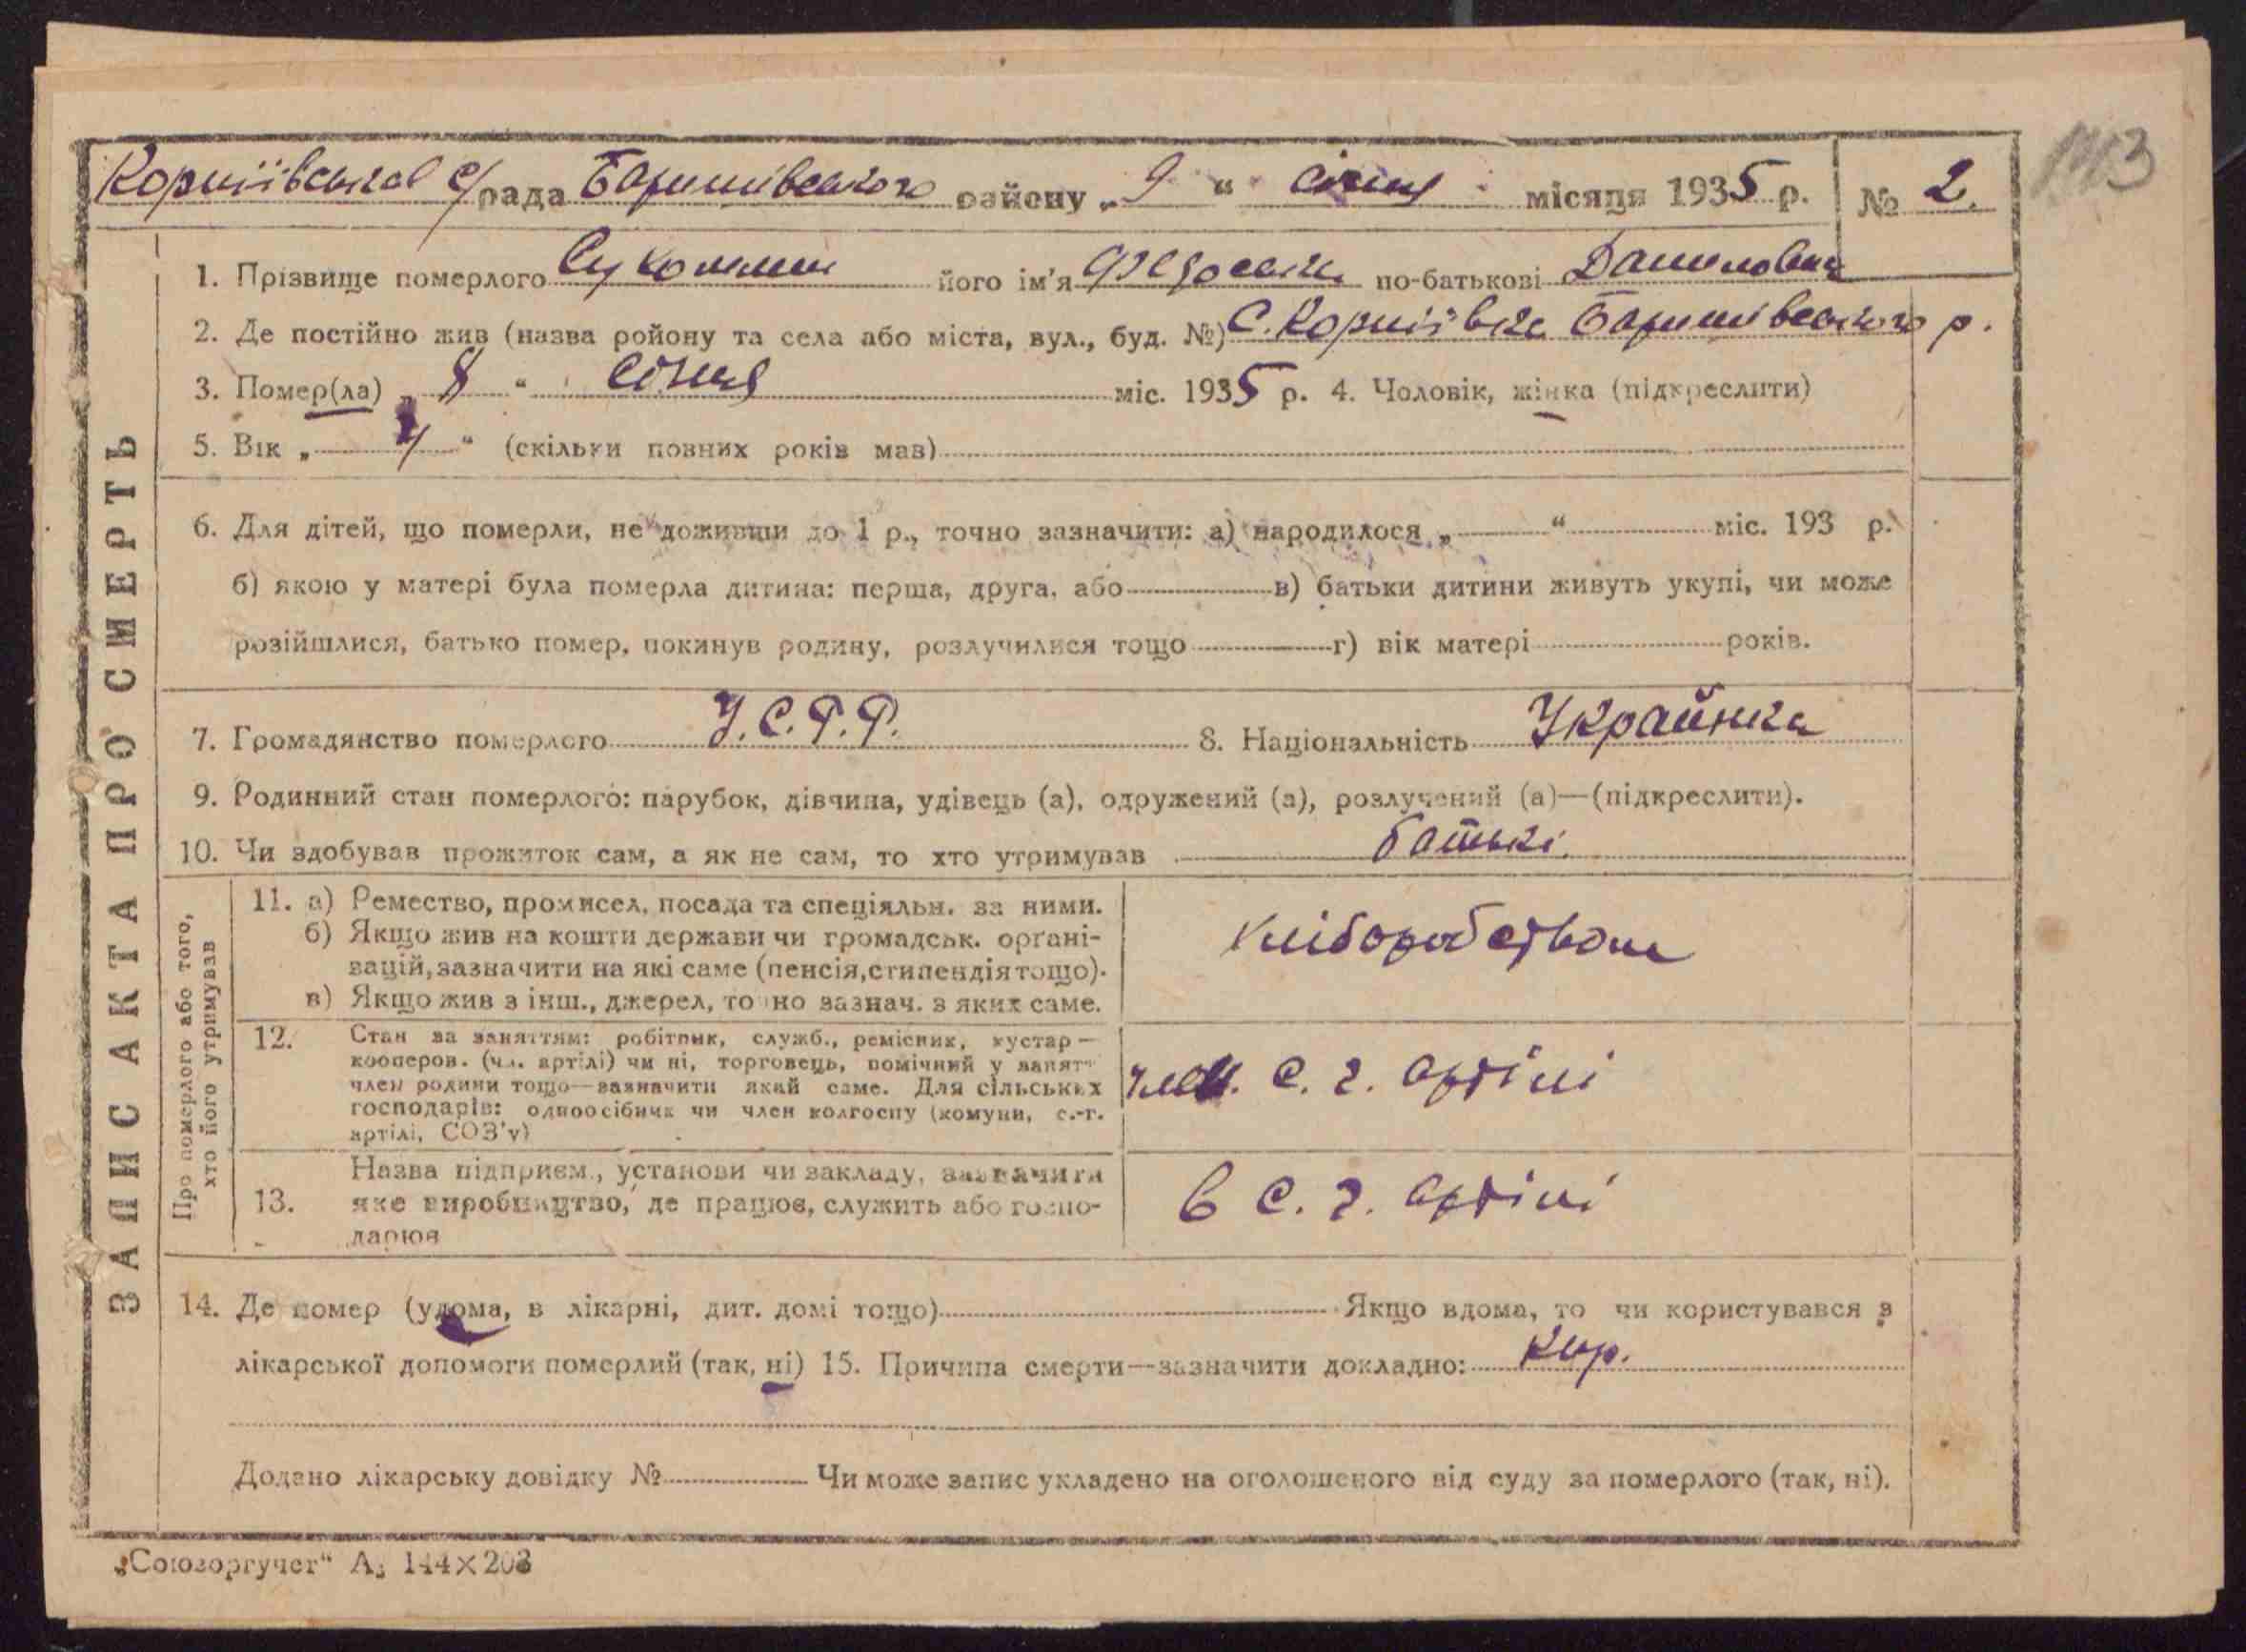 Корніївська с/рада Баришівського району „9“ січня місяця 1935 р. № 2.
143
1. Прізвище померлого його ім'я Федоська по-батькові Даниловна
2. Де постійно жив (назва ройону та села або міста, вул., буд. №) С. Корніївка Баришівського р.
3. Помер(ла) „8“ січня міс. 1935 р. 4. Чоловік, жінка (підкреслити)
5. Вік „4“ (скільки повних років мав)
6. Для дітей, що померли, не доживши до 1 р., точно зазначити: а) народилося „ “ міс. 193 р.
б) якою у матері була померла дитина: перша, друга, або в) батьки дитини живуть укупі, чи може
розійшлися, батько помер, покинув родину, розлучилися тощо г) вік матері років.
7. Громадянство померлого У.С.Р.Р. 8. Національність Українка
9. Родинний стан померлого: парубок, дівчина, удівець (а), одружений (а), розлучений (а)—(підкреслити).
10. Чи здобував прожиток сам, а як не сам, то хто утримував батькі.
ЗАПИС АКТА ПРО СМЕРТЬ
Про померлого або того,
хто його утримував
11. а) Ремество, промисел, посада та спеціяльн. за ними.
б) Якщо жив на кошти держави чи громадськ. органі-
зацій, зазначити на які саме (пенсія, стипендія тощо).
в) Якщо жив з інш., джерел, точно зазнач. з яких саме.
хліборобством
12. Стан за заняттям: робітник, служб., ремісник, кустар—
кооперов. (чл. артілі) чи ні, торговець, помічний у занят.
член родини тощо—зазначити який саме. Для сільських
господарів: одноосібник чи член колгоспу (комуни, с.-г.
артілі, СОЗ'у)
член. с. г. артілі
13. Назва підприєм., установи чи закладу, зазначити
яке виробництво, де працює, служить або госпо-
дарює
в с. г. артілі
14. Де помер (удома, в лікарні, дит. домі тощо) Якщо вдома, то чи користувався з
лікарської допомоги померлий (так, ні) 15. Причина смерти—зазначити докладно: Кир.
Додано лікарську довідку № Чи може запис укладено на оголошеного від суду за померлого (так, ні).
„Союзоргучет“ А₅ 144×203